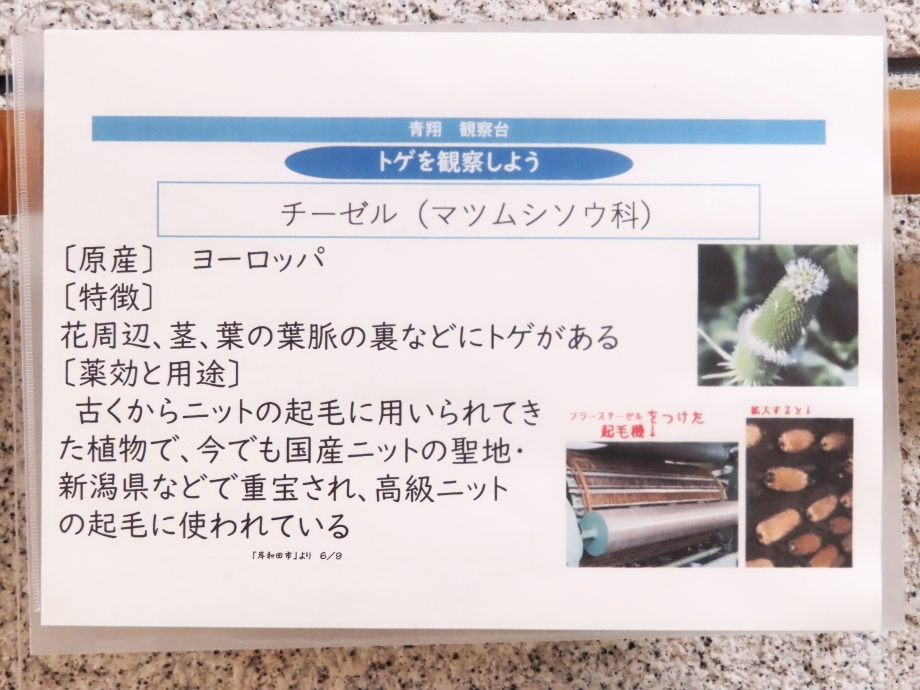 青翔　観察台
トゲを観察しよう
チーゼル（マツムシソウ科）
〔原産〕　ヨーロッパ
〔特徴〕
花周辺、茎、葉の葉脈の裏などにトゲがある
〔薬効と用途〕
古くからニットの起毛に用いられてき
た植物で、今でも国産ニットの聖地・
新潟県などで重宝され、高級ニット
の起毛に使われている
「岸和田市」より　6/9
フラーズチーゼルをつけた
起毛機↓
拡大すると↓